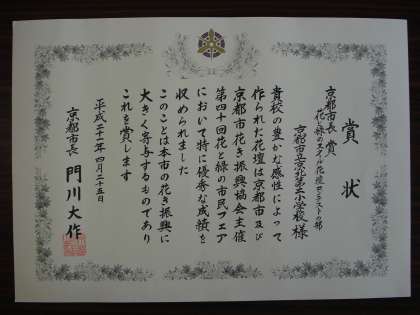 賞状
京都市長賞
花と緑のスクール花壇コンテストの部
京都市立京北第二小学校様
貴校の豊かな感性によって
作られた花壇は京都市及び
京都市花き振興協会主催
第四十回花と緑の市民フェア
において特に優秀な成績を
収められました
このことは本市の花き振興に
大きく寄与するものであり
これを賞します
平成二十六年四月二十五日
京都市長 門川大作